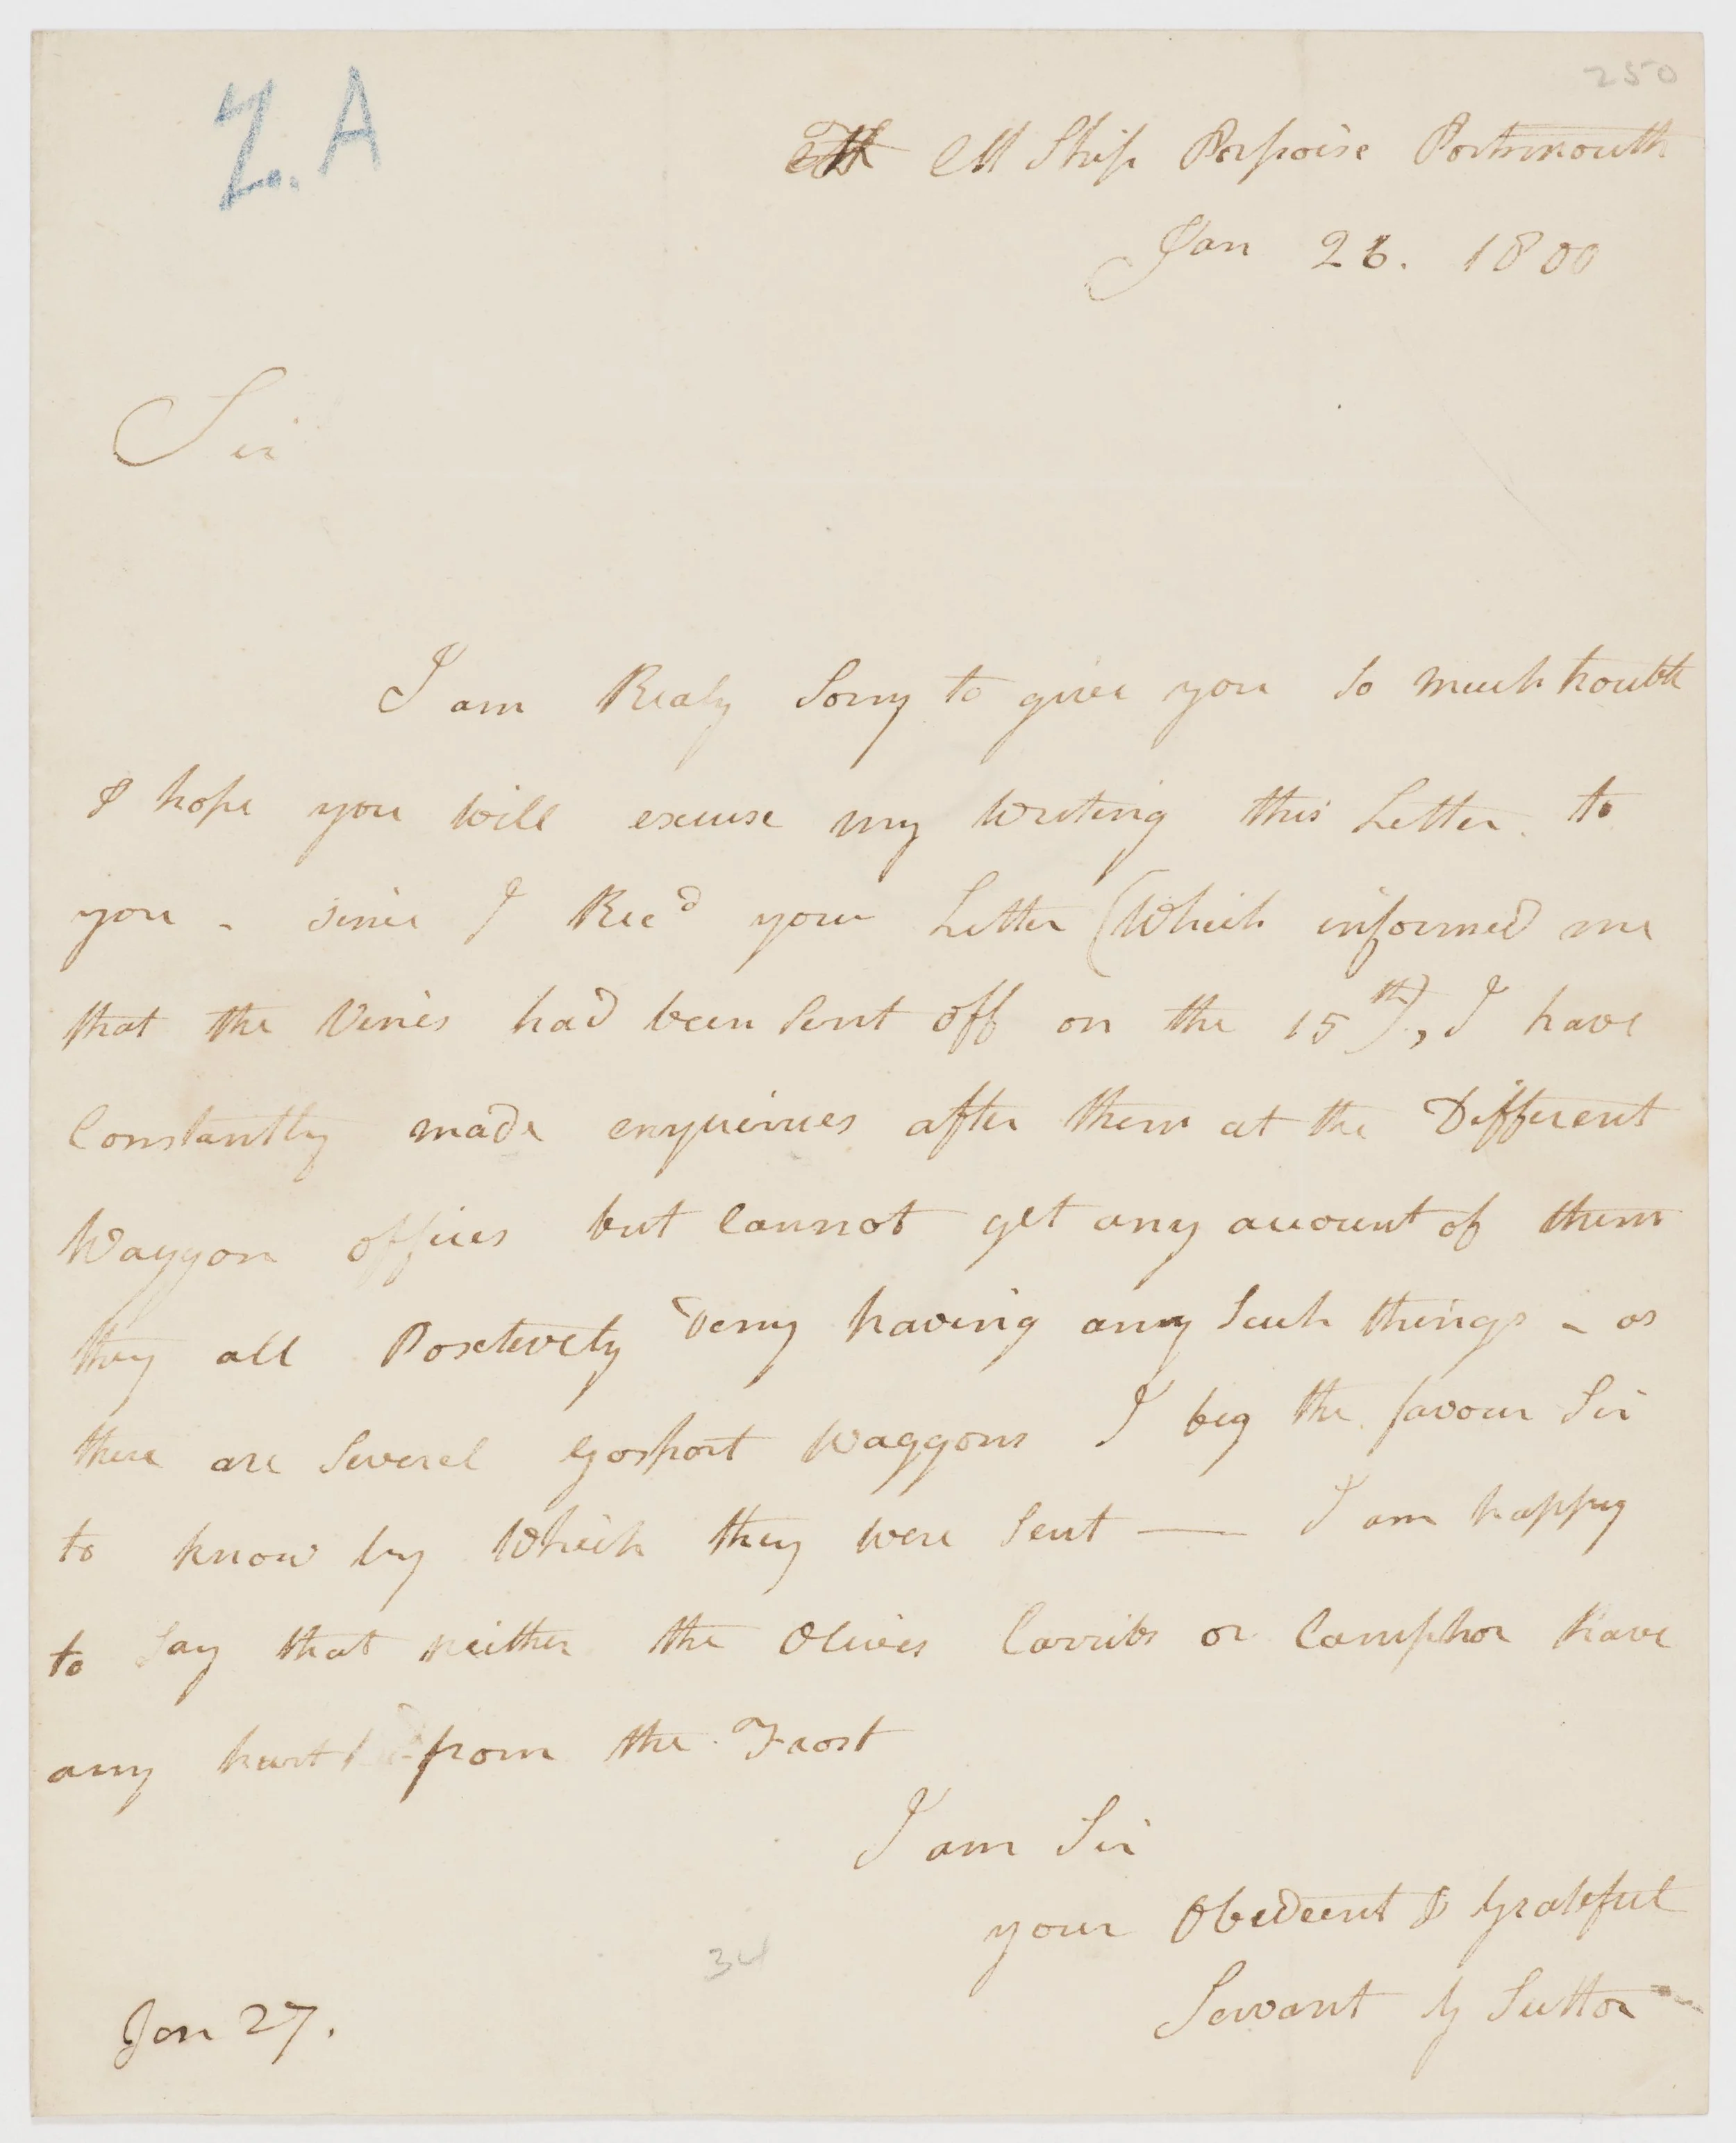 250
Z. A
M Ship Porpoise Portsmouth
Jan 26. 1800
Sir
I am Realy Sorry to give you so much trouble
I hope you will excuse my writing this Letter to
you - since I Rec'd your Letter (Which informed me
that the Vines had been sent off on the 15th), I have
Constantly made enquiries after them at the Different
Waggon offices but Cannot get any account of them
they all Posetively Deny having any Such things - as
there are Several Gosport Waggons I beg the favour Sir
to know by Which they were Sent — I am happy
to Say that neither the Olives Carribs or Camphor have
any hurt from the Frost
I am Sir
your Obedient & Grateful
Servant G Sutto
34
Jan 27.